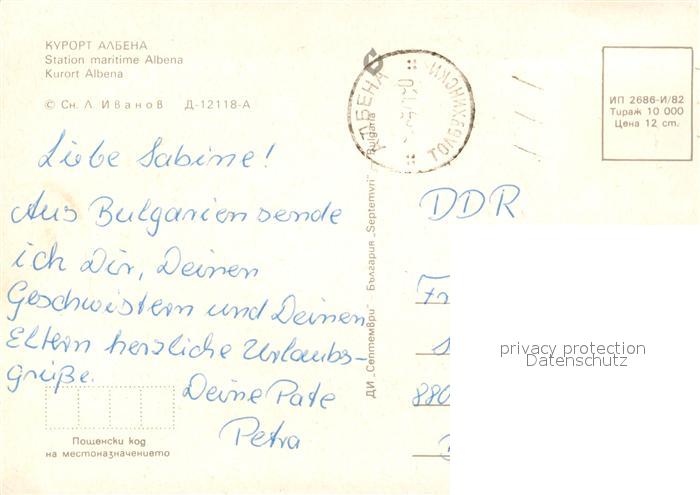 КУРОРТ АЛБЕНА
Station maritime Albena
Kurort Albena
© Сн. Л. Иванов Д-12118-А
Liebe Sabine!
Aus Bulgarien sende
ich Dir, Deinen
Geschwistern und Deinen
Eltern herzliche Urlaubs-
grüße.
Deine Pate
Petra
Пощенски код
на местоназначението
ДИ „Септември" България „Septemvri" Bulgaria
АЛБЕНА
ТОЛБУХИНСКИ
ИП 2686-И/82
Тираж 10 000
Цена 12 ст.
DDR
Fr
880
privacy protection
Datenschutz